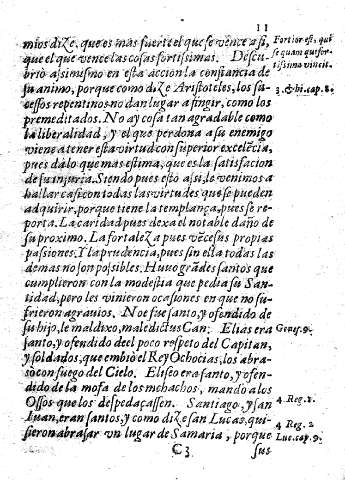 11
mios dize, que es mas fuerte el que se vence a si,
que el que vence las cosas fortissimas. Descu-
briò assimismo en esta accion la constancia de
su animo, porque como dize Aristoteles, los su-
cessos repentinos no dan lugar a fingir, como los
premeditados. No ay cosa tan agradable como
la liberalidad, y el que perdona a su enemigo
viene a tener esta virtud con superior excelẽcia,
pues dà lo que mas estima, que es la satisfacion
de su injuria. Siendo pues esto assi, le venimos a
hallar casi con todas las virtudes que se pueden
adquirir, porque tiene la templança, pues se re-
porta. La caridad pues dexa el notable daño de
su proximo. La fortaleza pues vẽce sus propias
passiones. Y la prudencia, pues sin ella todas las
demas no son possibles. Huuo grãdes santos que
cumplieron con la modestia que pedia su San-
tidad, pero les vinieron ocasiones en que no su-
frieron agrauios. Noe fue santo, y ofendido de
su hijo, le maldixo, maledictus Can. Elias era
santo, y ofendido del poco respeto del Capitan,
y soldados, que embiò el Rey Ochocias, los abra-
sò con fuego del Cielo. Eliseo era santo, y ofen-
dido de la mofa de los mchachos, mandò a los
Ossos que los despedaçassen. Santiago, y san
Iuan, eran santos, y como dize san Lucas, qui-
sieron abrasar vn lugar de Samaria, porque
C3 sus
Fortior est, qui
se quam qui for-
tissima vincit.
3. Ethi. cap. 8.
Genes. 9.
4. Reg. 1.
4. Reg. 2
Luc. cap. 9.